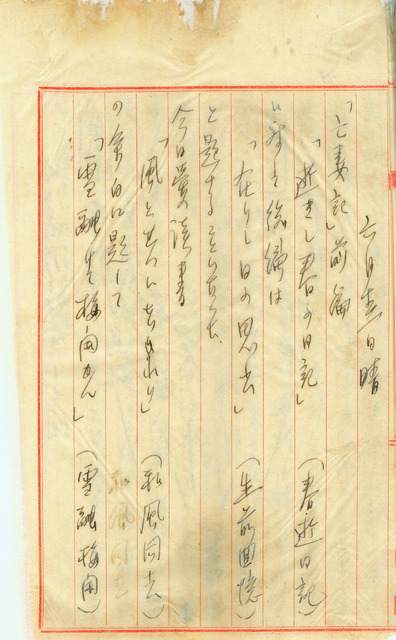 六月去日晴
「亡妻記」前篇
「逝きし春の日記」(春逝日記)
に对し後編は
「在りし日の思出」(生前回憶)
と題することにした
今日愛読書
「風と共に去れり」(和風同去)
の余白に題して 和風同去
「雪融けて梅開かん」(雪融梅開)